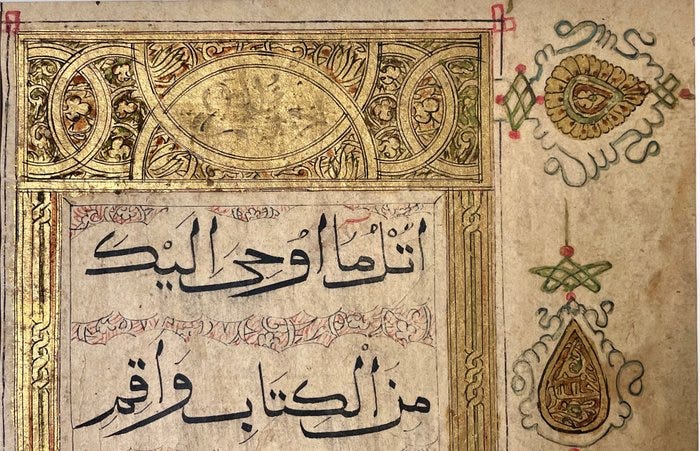 اُتْلُ مَا اُوْحِىَ اِلَيْكَ
مِنَ الْكِتَابِ وَاَقِمِ